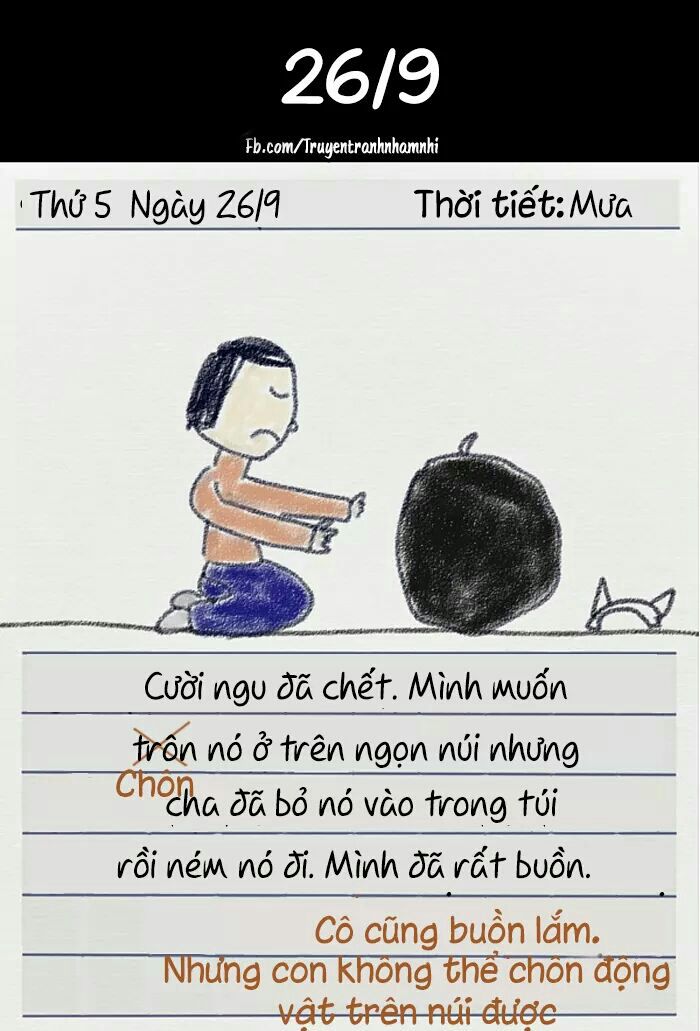 26/9
Fb.com/Truyentranhnhamnhi
Thứ 5 Ngày 26/9 Thời tiết: Mưa
Cười ngu đã chết. Mình muốn
trôn nó ở trên ngọn núi nhưng
Chôn
cha đã bỏ nó vào trong túi
rồi ném nó đi. Mình đã rất buồn.
Cô cũng buồn lắm.
Nhưng con không thể chôn động
vật trên núi được